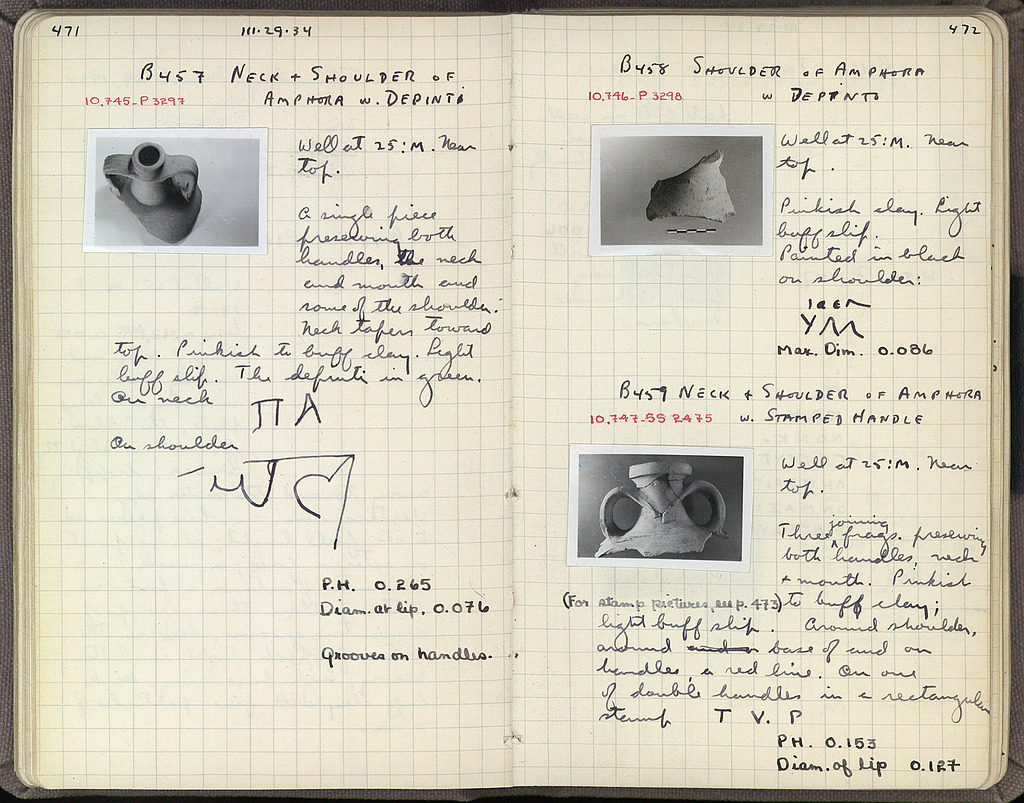 471
111·29·34
B457 NECK + SHOULDER OF
10,745-P 3297
AMPHORA W. DEPINTI
Well at 25:M. Near
top.
A single piece
preserving both
handles, the neck
and mouth and
some of the shoulder.
Neck tapers toward
top. Pinkish to buff clay. Light
buff slip. The depinti in green.
On neck
ΠΑ
On shoulder
P.H. 0.265
Diam. at lip. 0.076
Grooves on handles.
472
B458 SHOULDER OF AMPHORA
10,746-P 3298
W DEPINTO
Well at 25:M. Near
top.
Pinkish clay. Light
buff slip.
Painted in black
on shoulder:
Max. Dim. 0.086
B459 NECK + SHOULDER OF AMPHORA
10,747-SS 2475
W. STAMPED HANDLE
Well at 25:M. Near
top.
joining
Three frags. preserving
both handles, neck
+ mouth. Pinkish
(For stamp pictures, see p. 473) to buff clay;
light buff slip. Around shoulder,
around base of and on
handles, a red line. On one
of double handles in a rectangular
stamp T V. P
PH. 0.153
Diam. of lip 0.127